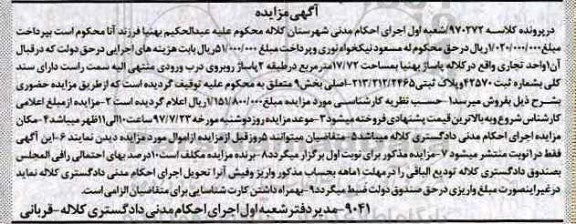 آگهی مزایده
در پرونده کلاسه ۹۷۰۲۷۲/شعبه اول اجرای احکام مدنی شهرستان کلاله محکوم علیه عبدالحکیم بهنیا فرزند آنا محکوم است بپرداخت
مبلغ ۱/۰۲۰/۰۰۰/۰۰۰ ریال در حق محکوم له مسعود نیکخواه نوری وپرداخت مبلغ ۵۱/۰۰۰/۰۰۰ ریال بابت هزینه های اجرایی در حق دولت که در قبال
آن ۱واحد تجاری واقع در کلاله پاساژ بهنیا بمساحت ۱۷/۷۲مترمربع درطبقه ۲پاساژ روبروی درب ورودی منتهی الیه سمت راست دارای سند
کلی بشماره ثبت ۴۲۵۷۰ وپلاک ثبتی ۲۱۳/۲۱۲/۲۴۶۵-اصلی بخش۹ متعلق به محکوم علیه توقیف گردیده است که از طریق مزایده حضوری
بشرح ذیل بفروش میرسد۱-حسب نظریه کارشناسی مورد مزایده مبلغ ۱/۱۵۱/۸۰۰/۰۰۰ریال اعلام گردیده است ۲-مزایده از مبلغ اعلامی
کارشناس شروع وبه بالاترین قیمت پیشنهادی فروخته میشود ۳-موعد مزایده روز دوشنبه مورخه ۹۷/۷/۲۳ ساعت ۱۰الی۱۱ظهر میباشد ۴-مکان
مزایده اجرای احکام مدنی دادگستری کلاله میباشد۵-متقاضیان میتوانند ۵روز قبل از مزایده از اموال مورد مزایده دیدن نمایند ۶-این آگهی
فقط در۱نوبت منتشر میشود ۷-مزایده مذکور برای نوبت اول برگزار میگردد۸-برنده مزایده مکلف است ۱۰درصد بهای احتمالی رافی المجلس
بصندوق دادگستری کلاله تودیع الباقی را در مهلت ۱ماهه بحساب مذکور واریز وفیش آنرا تحویل اجرای احکام مدنی دادگستری کلاله نماید
در غیر اینصورت مبلغ واریزی در حق صندوق دولت ضبط میگردد۹-بهمراه داشتن کارت شناسایی برای متقاضیان الزامی است.
۹۰۴۱-مدیر دفتر شعبه اول اجرای احکام مدنی دادگستری کلاله-قربانی